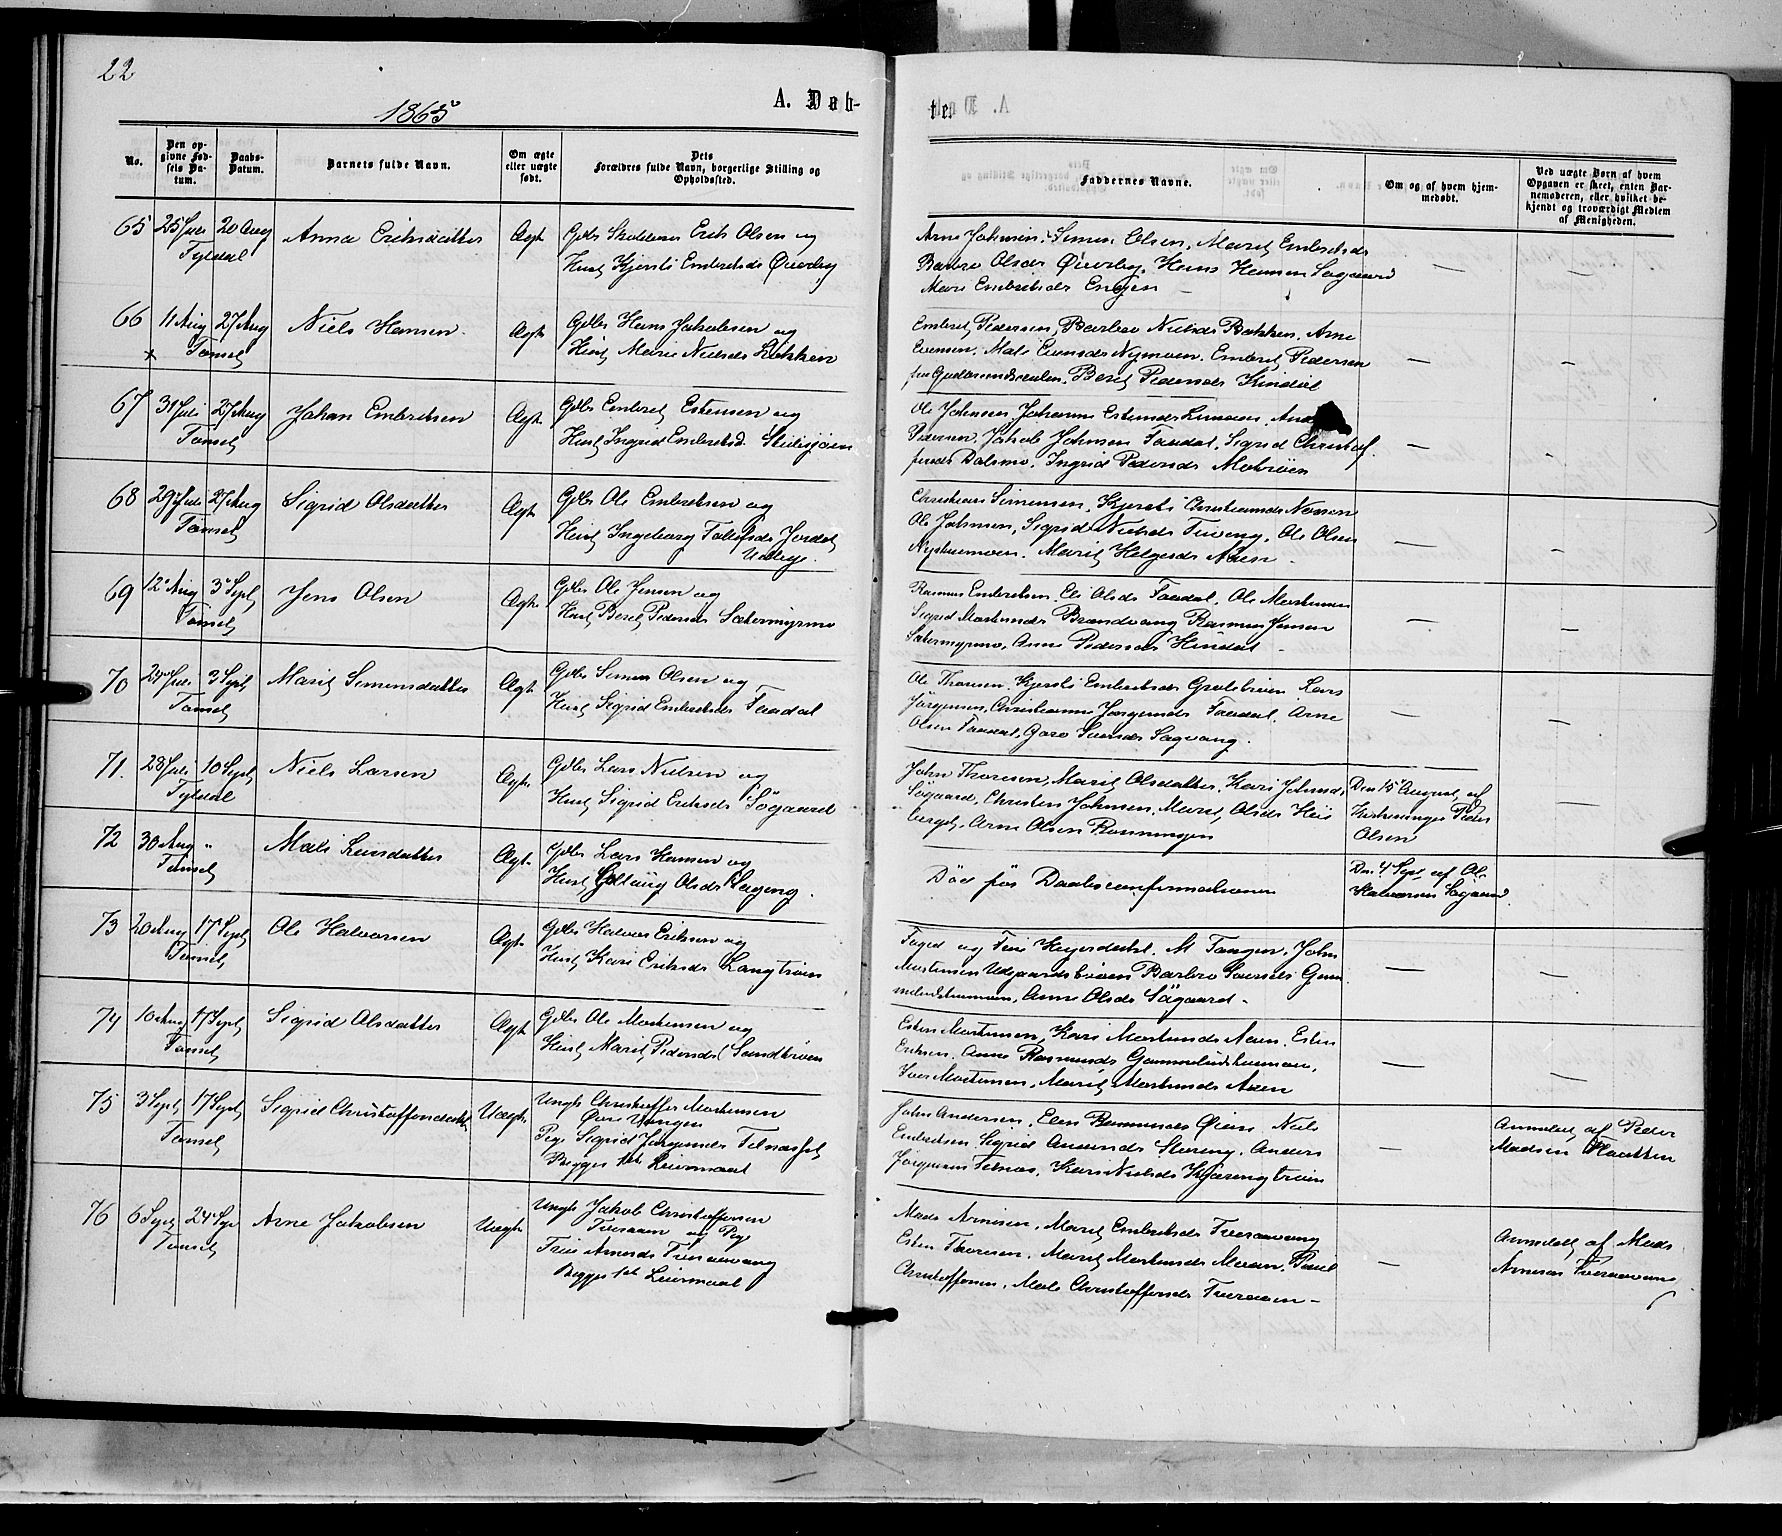 22
1865
A. Døb-
te
No.
Den op-
givne Fød-
sels Da-
tum.
Daabs-
Datum.
Barnets fulde Navn.
Om ægte
eller uægte
født.
Dets
Forældres fulde Navn, borgerlige Stilling og
Opholdssted.
Faddernes Navne.
Om og af hvem hjem-
medøbt.
Ved uægte Børn af hvem
Opgaven er skeet, enten Bar-
nemoderen, eller hvilket be-
kjendt og troværdigt Medlem
af Menigheden.
65 25 Juli 20 Aug Anna Eriksdatter Ægte Gdbr Skoleholder Erik Olsen og
Tyldal
Hust Kjersti Embretsdr Øverby
Arne Johnsen, Simen Olsen, Marit Embretsdr
Barbro Olsdr Øverby, Hans Hansen Søgaard
Mari Embretsdr Engen
66 11 Aug 27 Aug Niels Hansen Ægte Gdbr Hans Jakobsen og
Tønset
Hust Marie Nielsdr Bakken
Embret Pedersen, Barbro Nielsdr Bakken, Arne
Evensen, Mali Evensdr Nymoen, Embret Pedersen
fra Gudbrandsdalen, Berit Pedersdr Kindal
67 31 Juli 27 Aug Johan Embretsen Ægte Gdbr Embret Estensen og
Tønset
Hust Ingrid Embretsd. Stubsjøen
Ole Johnsen, Johanne Estensdr
Pedersen, Jakob Johnsen Faadal, Sigrid Christof
fersdr Dalsmo, Ingrid Pedersdr Mobrøen
68 29 Juli 27 Aug Sigrid Olsdatter Ægte Gdbr Ole Embretsen og
Tønset
Hust Ingeborg Tollefsdr Jordet
Udleg.
Christian Simensen, Kjersti Christiansdr Neveren
Ole Johnsen, Sigrid Nielsdr Tuveng, Ole Olsen
Nystumoen, Marit Helgesdr Aaen
69 12 Aug 3 Sept Jens Olsen Ægte Gdbr Ole Jensen og
Tønset
Hust Berit Pedersdr Sætermyrmo
Rasmus Embretsen, Eli Olsdr Faadal, Ole Mortensen
Sigrid Mortensdr Brandvang, Rasmus Jensen
Sætermyrmo, Anne Pedersdr Kindal
70 24 Juli 3 Sept Marit Simensdatter Ægte Gdbr Simen Olsen og
Tønset
Hust Sigrid Embretsdr Faadal
Ole Thoresen, Kjersti Embretsdr Grøtsbrøen, Lars
Jørgensen, Christianne Jørgensdr Faadal, Arne
Olsen Faadal, Goro Iversdr Sagvang.
71. 28 Juli 10 Sept Niels Larsen Ægte Gdbr Lars Nielsen og
Tyldal
Hust Sigrid Eriksdr Søgaard
John Thoresen, Marit Olsdatter, Kari Johnsd.
Søgaard, Christen Johnsen, Marit Olsdr Høi
berget, Arne Olsen Ronningen
Den 15 August, af
Kirkesanger Peder
Olsen
72 30 Aug " Mali Larsdatter Ægte Gdbr Lars Hansen og
Tønset
Hust Olsdr Lageng.
Død før Daabsconfirmationen
Den 4 Sept af Ole
Halvorsen Søgaard
73 20 Aug 17 Sept Ole Halvorsen Ægte Gdbr Halvor Eriksen og
Tønset
Hust Kari Eriksdr Langtrøen
Foged og Frue Hegerdahl, M Tangen, John
Mortensen Udgaardstrøen, Barbro Iversdr Gam
melstumoen, Anne Olsdr Søgaard
74 10 Aug 17 Sept Sigrid Olsdatter Ægte Gdbr Ole Mortensen og
Tønset
Hust Marit Pedersdr Sandtrøen
Esten Mortensen, Kari Mortensdr Aaen, Esten
Eriksen, Anne Rasmusdr Gammelstumoen,
Iver Mortensen, Marit Mortensdr Aaen
75 3 Sept 17 Sept Sigrid Christoffersdatter Uægte Ungk Christoffer Mortensen
Tønset
Øvre Vangen
Pige Sigrid Jørgensdr Telneset
Begges 1ste Leiermaal
John Andersen, Elen Rasmusdr Øien, Niels
Embretsen, Sigrid Amundsdr Støeng, Anders
Jørgensen Telnes, Kari Nielsdr Kjærengtrøen
Anmeldt af Peder
Madsen Flaatten
76 6 Sept 24 Sept Arne Jakobsen Uægte Ungk Jakob Christoffersen
Tønset
Tveraaen og Pige
Arnesdr Tveraavang
Begges 1ste Leiermaal
Mads Arnesen, Marit Embretsdr Tveraavang
Esten Thoresen, Marit Mortensdr Moen, Poul
Christoffersen, Mali Christoffersdr Tveraaen
Anmeldt af Mads
Arnesen Tveraavang